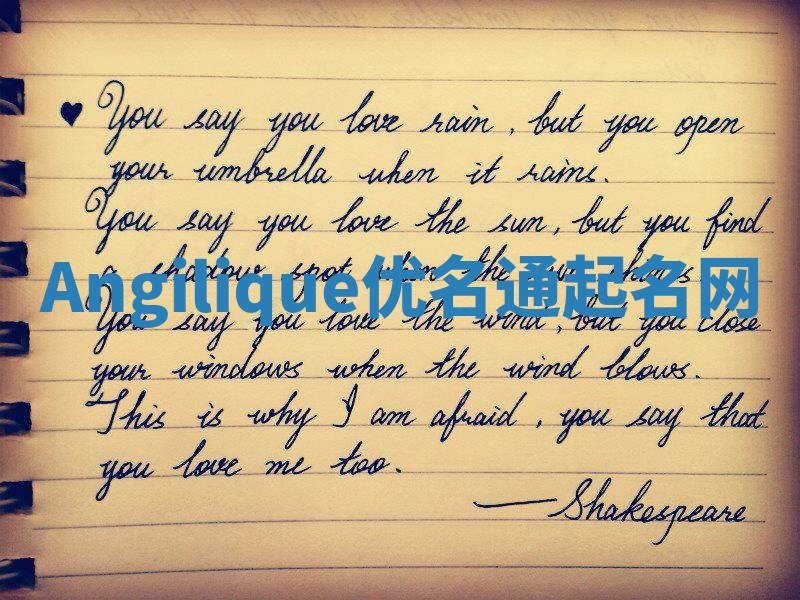 You say you love rain, but you open
your umbrella when it rains.
You say you love the sun, but you find
a shadow spot when the sun shines
Angilique优名通起名网
You say you love the wind, but you close
your windows when the wind blows.
This is why I am afraid, you say that
you love me too.
—Shakespeare